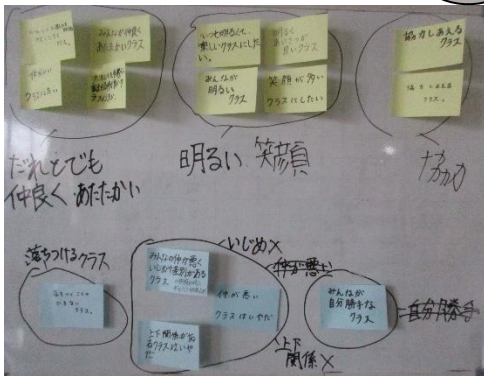 みんなが仲良く
あたたかいクラス
仲がいい
クラスにしたい
いつも明るくて、
楽しいクラスにした
い。
明るく
あいさつが
良いクラス
みんなが
明るい
クラス
笑顔が多い
クラスにしたい
協力しあえる
クラス
協力しあえる
クラス。
だれとでも
仲良く あたたかい
明るい 笑顔
協力
落ちつけるクラス
クラス。
いじめ×
みんなの仲が悪く
いじめや差別がある
クラス
仲が悪い
クラスはいやだ
上下関係がある
クラスはいやだ
仲が悪い
みんなが
自分勝手な
クラス
自分勝手
上下
関係×